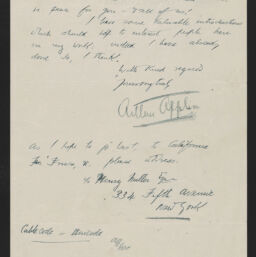 in peace for you - & all of us!
I have some valuable introductions
which should help to interest people here
in my work. indeed I have already
done so, I think.
With kind regard
Arthur Applin
As I hope to go East, to California
for
please address.
c/o Henry Miller Esq
334 Fifth Avenue
New York
Cablecode -